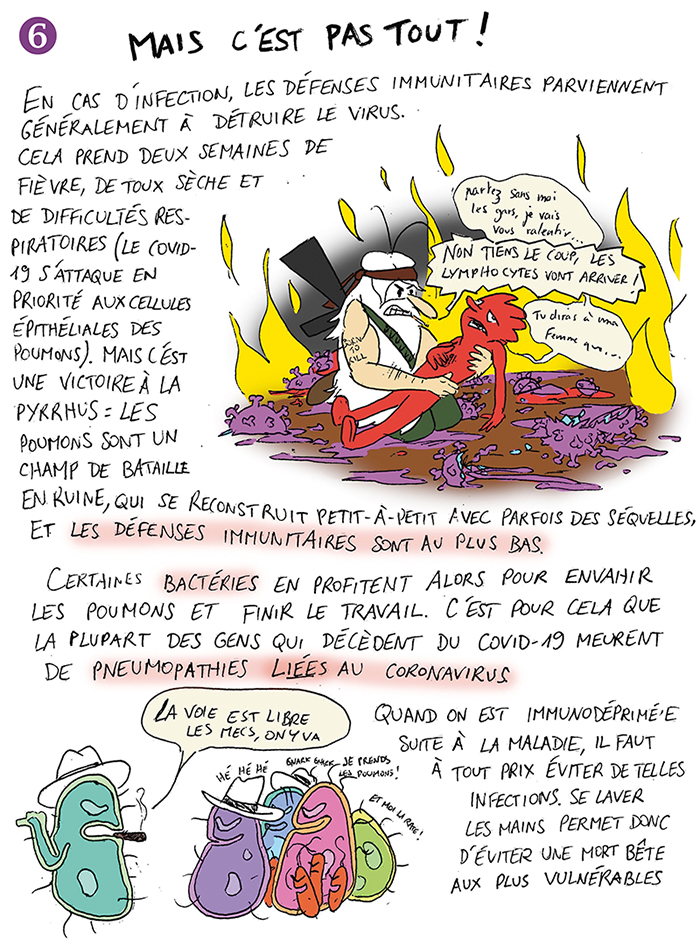 6
MAIS C'EST PAS TOUT !
EN CAS D'INFECTION, LES DÉFENSES IMMUNITAIRES PARVIENNENT
GÉNÉRALEMENT À DÉTRUIRE LE VIRUS.
CELA PREND DEUX SEMAINES DE
FIÈVRE, DE TOUX SÈCHE ET
DE DIFFICULTÉS RES-
PIRATOIRES (LE COVID-
19 S'ATTAQUE EN
PRIORITÉ AUX CELLULES
ÉPITHÉLIALES DES
POUMONS). MAIS C'EST
UNE VICTOIRE À LA
PYRRHUS : LES
POUMONS SONT UN
CHAMP DE BATAILLE
EN RUINE, QUI SE RECONSTRUIT PETIT-À-PETIT AVEC PARFOIS DES SÉQUELLES,
ET LES DÉFENSES IMMUNITAIRES SONT AU PLUS BAS.
partez sans moi
les gars, je vais
vous ralentir...
NON TIENS LE COUP, LES
LYMPHOCYTES VONT ARRIVER !
Tu diras à ma
femme que...
BORN
TO
KILL
CERTAINES BACTÉRIES EN PROFITENT ALORS POUR ENVAHIR
LES POUMONS ET FINIR LE TRAVAIL. C'EST POUR CELA QUE
LA PLUPART DES GENS QUI DÉCÈDENT DU COVID-19 MEURENT
DE PNEUMOPATHIES LIÉES AU CORONAVIRUS
LA VOIE EST LIBRE
LES MECS, ON Y VA
HÉ HÉ HÉ
GNARK GNARK
JE PRENDS
LES POUMONS !
ET MOI LA RATE !
QUAND ON EST IMMUNODÉPRIMÉ·E
SUITE À LA MALADIE, IL FAUT
À TOUT PRIX ÉVITER DE TELLES
INFECTIONS. SE LAVER
LES MAINS PERMET DONC
D'ÉVITER UNE MORT BÊTE
AUX PLUS VULNÉRABLES